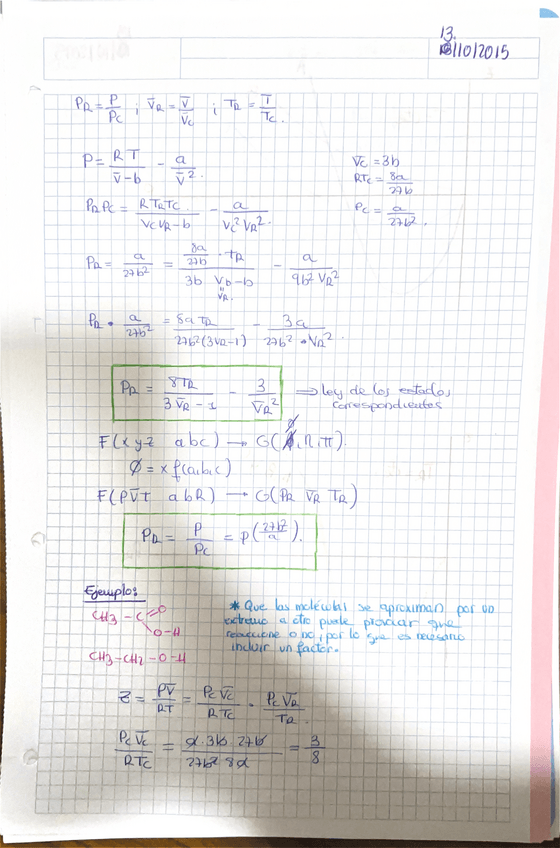 13.
10/2015
PR = P/Pc ; V̄R = V̄/V̄c ; TR = T/Tc.
P = RT/(V̄-b) - a/V̄².
V̄c = 3b
RTc = 8a/27b
Pc = a/27b².
PR Pc = R TR Tc/(Vc VR-b) - a/(Vc² VR²).
PR = a/27b² = (8a/27b · tR)/(3b Vb-b) - a/(9b² VR²)
"
VR.
PR · a/27b² = 8a TR/(27b²(3VR-1)) - 3a/(27b² · VR²).
PR = 8TR/(3V̄R - 1) - 3/V̄R² ⇒ Ley de los estados
correspondientes
F(x y z a b c) → G(ϕ, η, π).
ϕ = x f(a,b,c)
F(P V̄ t a b R) → G(PR V̄R TR)
PR = P/Pc = P(27b²/a).
Ejemplo:
CH3 - C =O
O-H
CH3-CH2-O-H
* Que las moléculas se aproximan por un
extremo a otro puede provocar que
reaccione o no, por lo que es necesario
incluir un factor.
Z = PV̄/RT = Pc V̄c/R Tc · Pc V̄R/TR.
Pc V̄c/R Tc = a · 3b · 27b/27b² 8a = 3/8